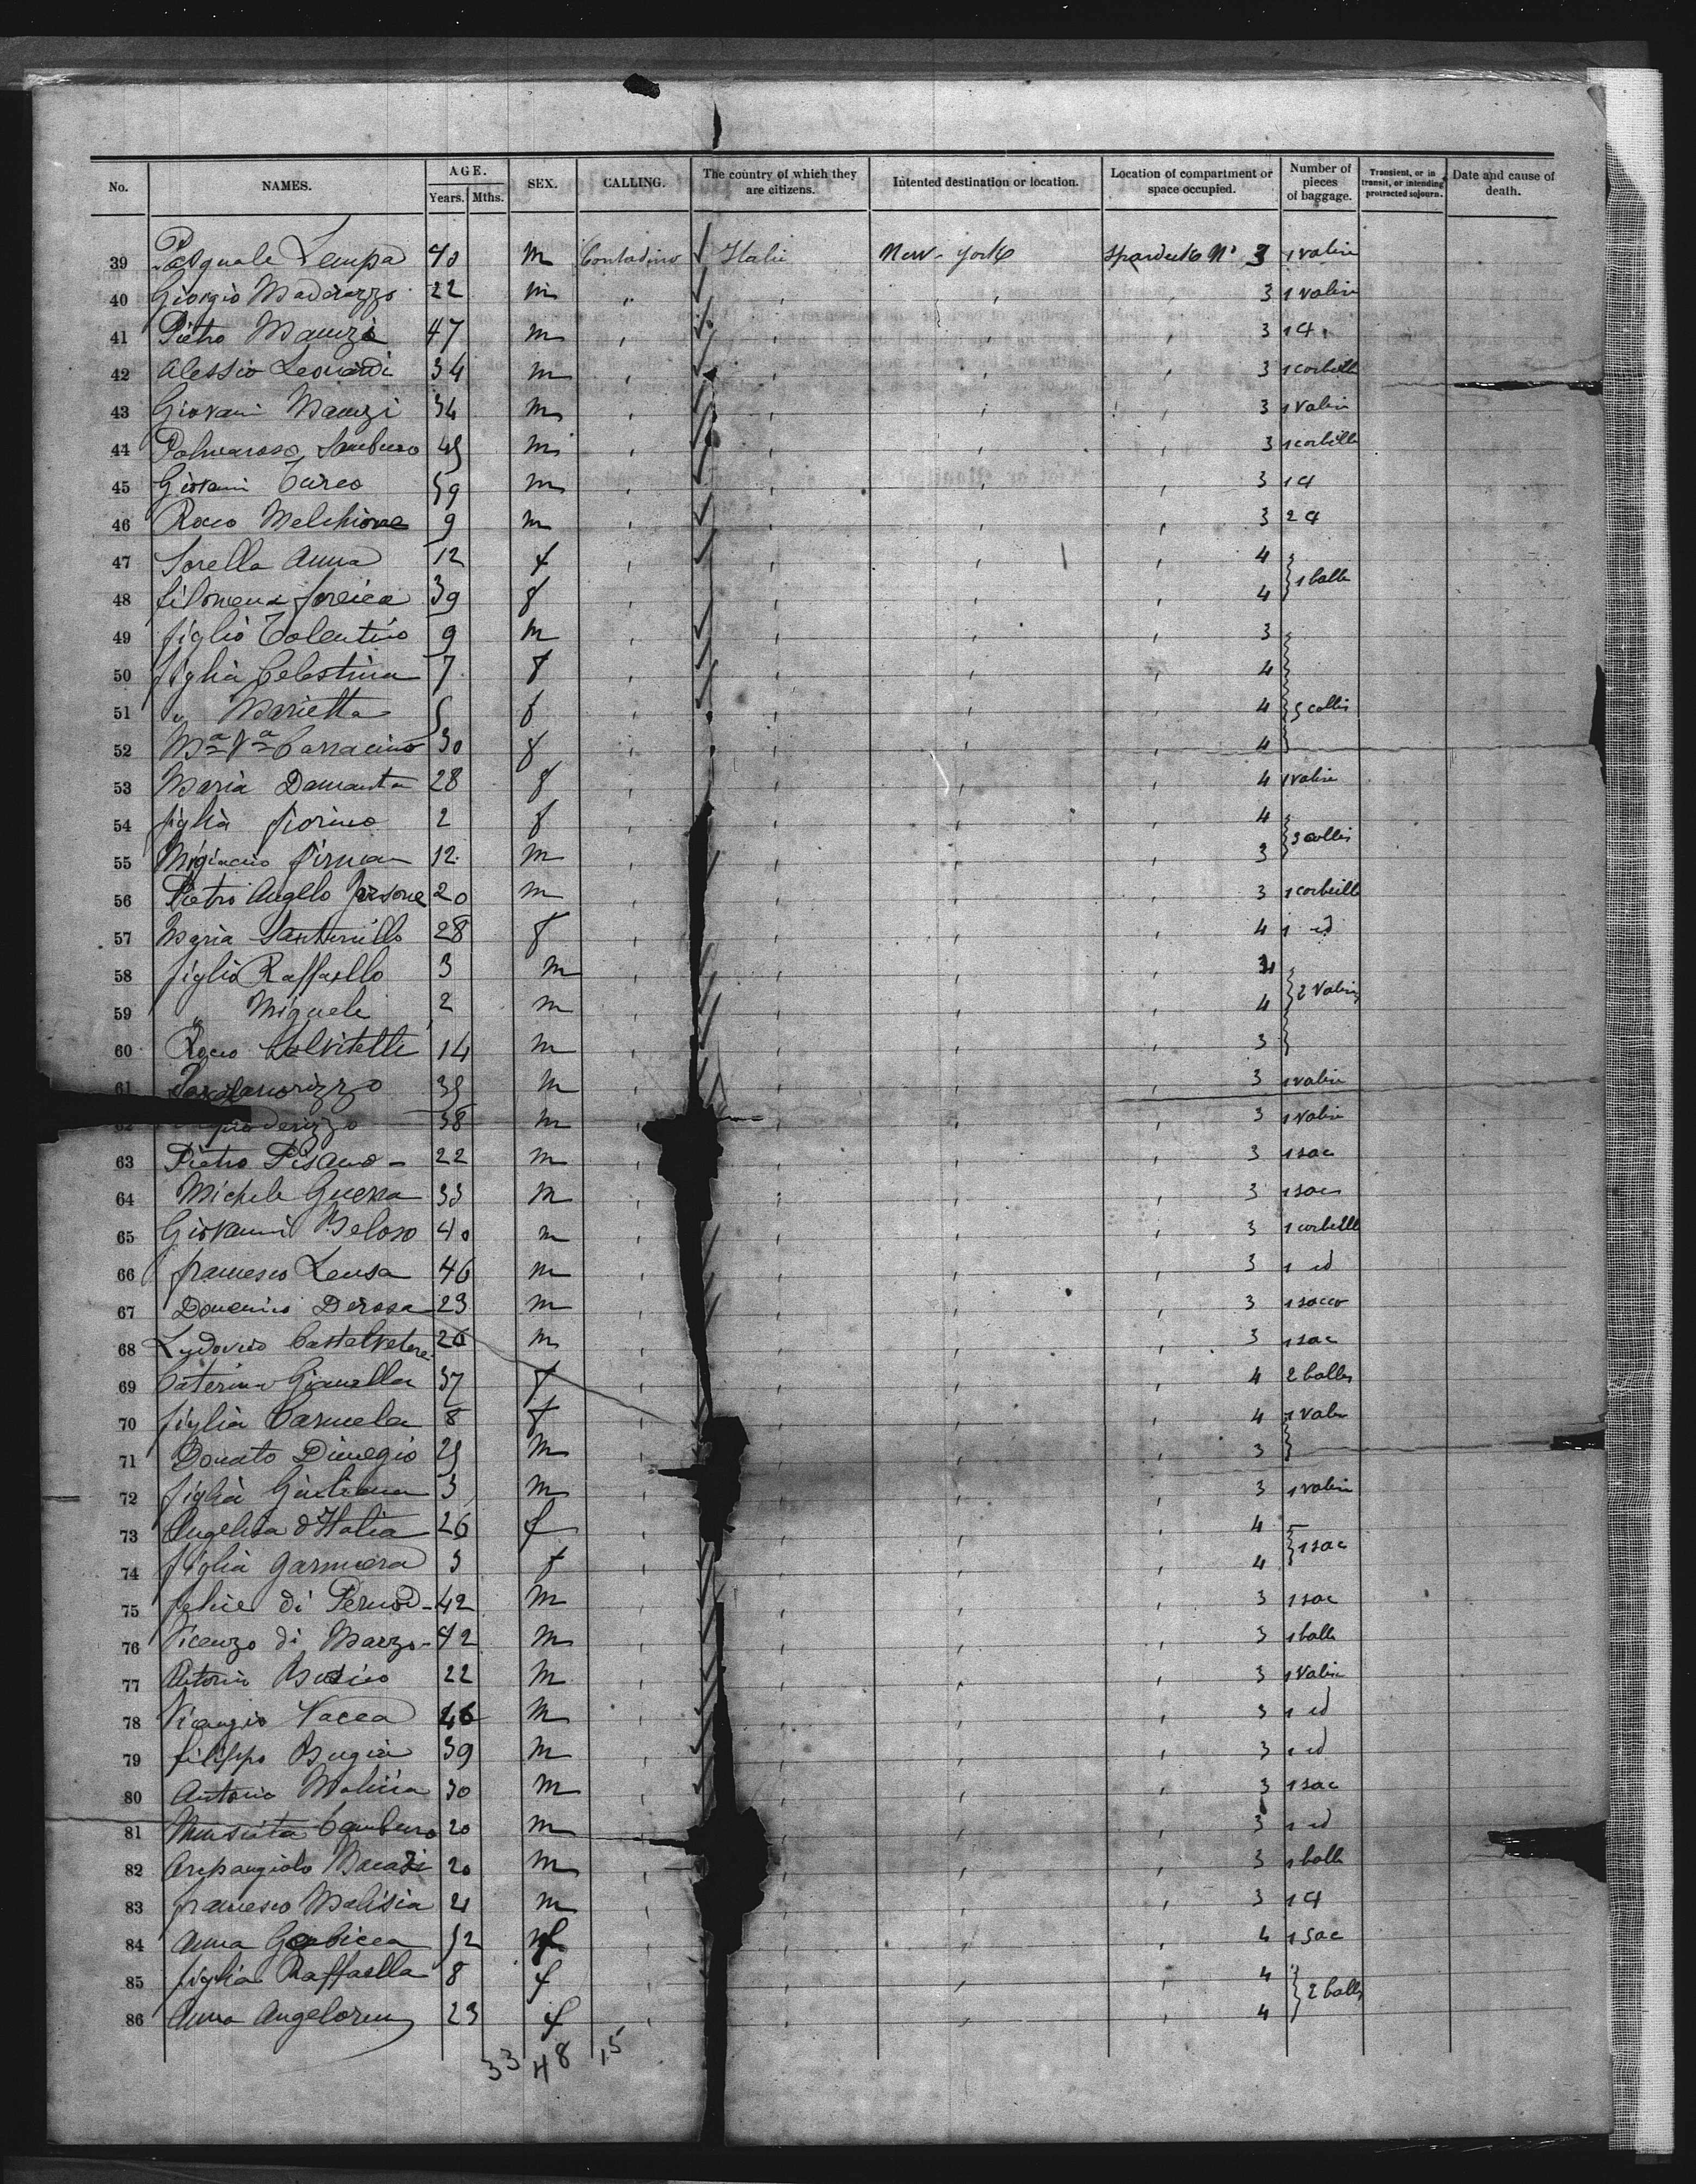 No. NAMES. AGE. Years. Mths. SEX. CALLING. The country of which they are citizens. Intented destination or location. Location of compartment or space occupied. Number of pieces of baggage. Transient, or in transit, or intending protracted sojourn. Date and cause of death.
39 Pasquale Lempa 40 m Contadino Italie New-York 3 1 valise
40 Giorgio 22 m " 3 1 valise
41 Pietro Manzi 47 m 3 1 Cl
42 Alessio Leonardi 34 m 3 1 corbeille
43 Giovani Manzi 34 m 3 1 valise
44 m 3 1 corbeille
45 Giovani Curco 59 m 3 1 Cl
46 Rocco Melchiorre 9 m 3 2 Cl
47 Sorella Anna 12 f 4 1 balle
48 Filomena 39 f 4
49 figlio Tolentino 9 m 3
50 figlia Celestina 7 f 4
51 " Marietta 5 f 4 5 collis
52 Mª Vª Carracino 30 f 4
53 Maria Damanta 28 f 4 1 valise
54 figlia fiorino 2 f 4 3 collis
55 12 m 3
56 Pietro Angello 20 m 3 1 corbeille
57 Maria Santurillo 28 f 4 1 id
58 figlio Raffaello 3 m 2 valises
59 " Miguele 2 m 4
60 Rocco Salvitelli 14 m 3
61 35 m 3 1 valise
58 m 3 1 valise
63 Pietro Pisano - 22 m 3 1 sac
64 Michele Guerra 33 m 3 1 sac
65 Giovanni Beloso 40 m 3 1 corbeille
66 francesco Lensa 46 m 3 1 id
67 Domenico Derosa 23 m 3 1 sacco
68 Ludovico Castelvetere 26 m 3 1 sac
69 Caterina Gianella 37 f 4 2 balles
70 figlia Carmela 8 f 4 1 valise
71 Donato Dimegio 25 m 3
72 figlia Giuliana 3 m 3 1 valise
73 Angelica d'Italia 26 f 4 1 sac
74 figlia 3 f 4
75 felice di 42 m 3 1 sac
76 Vicenzo di Marzo - 42 m 3 1 balle
77 Antonio 22 m 3 1 valise
78 Vacca 46 m 3 1 id
79 filippo Bugia 39 m 3 1 id
80 Antonio Malicia 30 m 3 1 sac
81 20 m 3 1 id
82 20 m 3 1 balle
83 francesco Malisia 21 m 3 1 Cl
84 Anna 52 f 4 1 sac
85 figlia Raffaella 8 f 4 2 balles
86 Anna 23 f 4
33 48 15